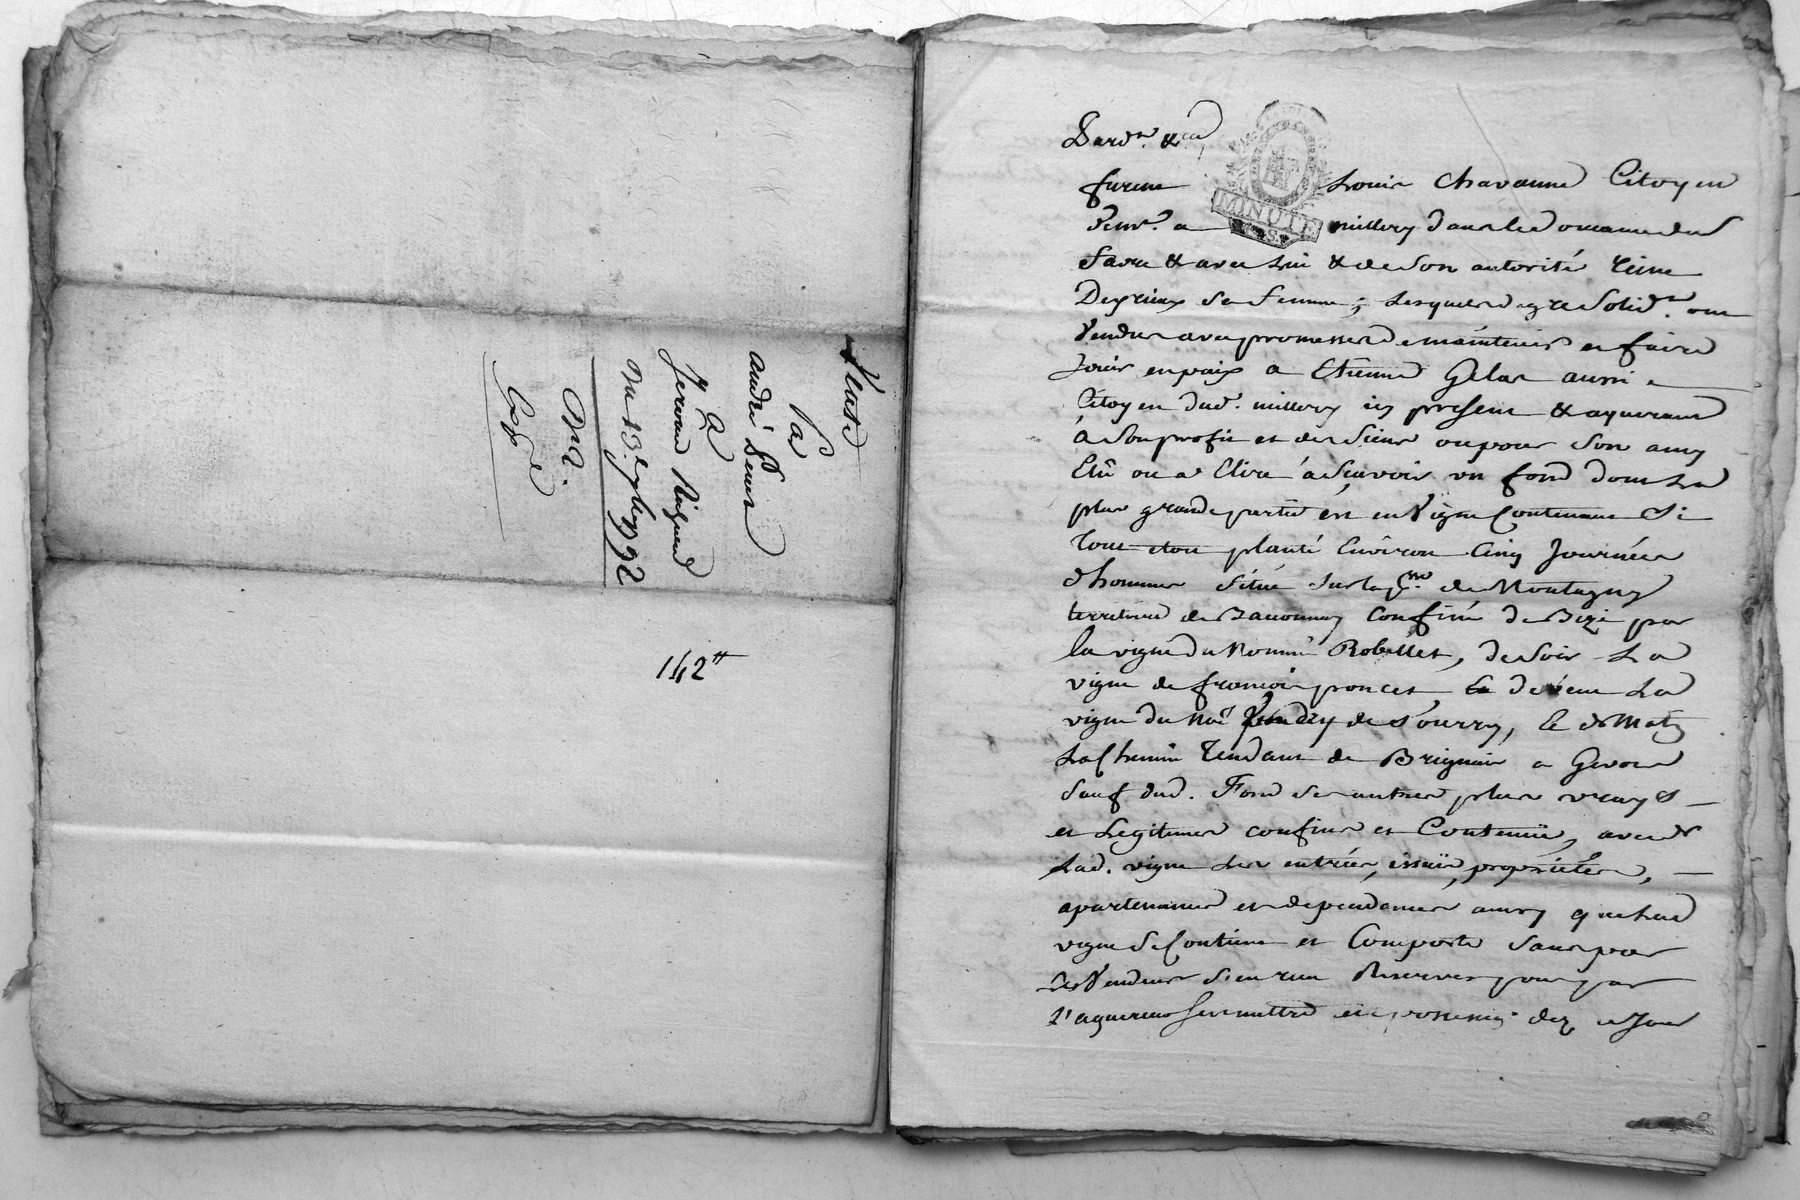 Vente
par
André
à
Jerome
Du 13. 7bre 1792
Exp.
142#
Pard.t &ca
MINUTE
furent Louis Chavanne Citoyen
demt. a millery dans le domaine de
favre & avec lui & de son autorité Reine
Deprieux sa femme; lesquels de gré solid.t ont
vendu avec promesse de maintenir et faire
jouir en paix a Etienne Gelas aussi
Citoyen dud. millery icy present & aquereur
à son profit et des siens ou pour son amy
Elû ou a Elire à sçavoir un fond dont la
plus grande partie est en vigne Contenant
tout planté Environ Cinq Journées
d'hommes situé sur la p.sse de Montagny
territoire de Baconnay Confiné de Bize par
la vigne du nommé Robellet, de soir la
vigne de françois poncet de vent la
vigne du né de Sourzy, le & Matin
Le Chemin Tendant de Brignais a Givors
sauf dud. Fond ses autres plus vrays
et Legitimes confins et Contenüe, avec
Lad. vigne ses entrées, issües, proprietés,
apartenances et dependances ainsy que lad
vigne se Contient et Comporte sans par
les vendeurs s'en rien Reserver pour par
l'aquereur s'en mettre en possession dez ce Jour